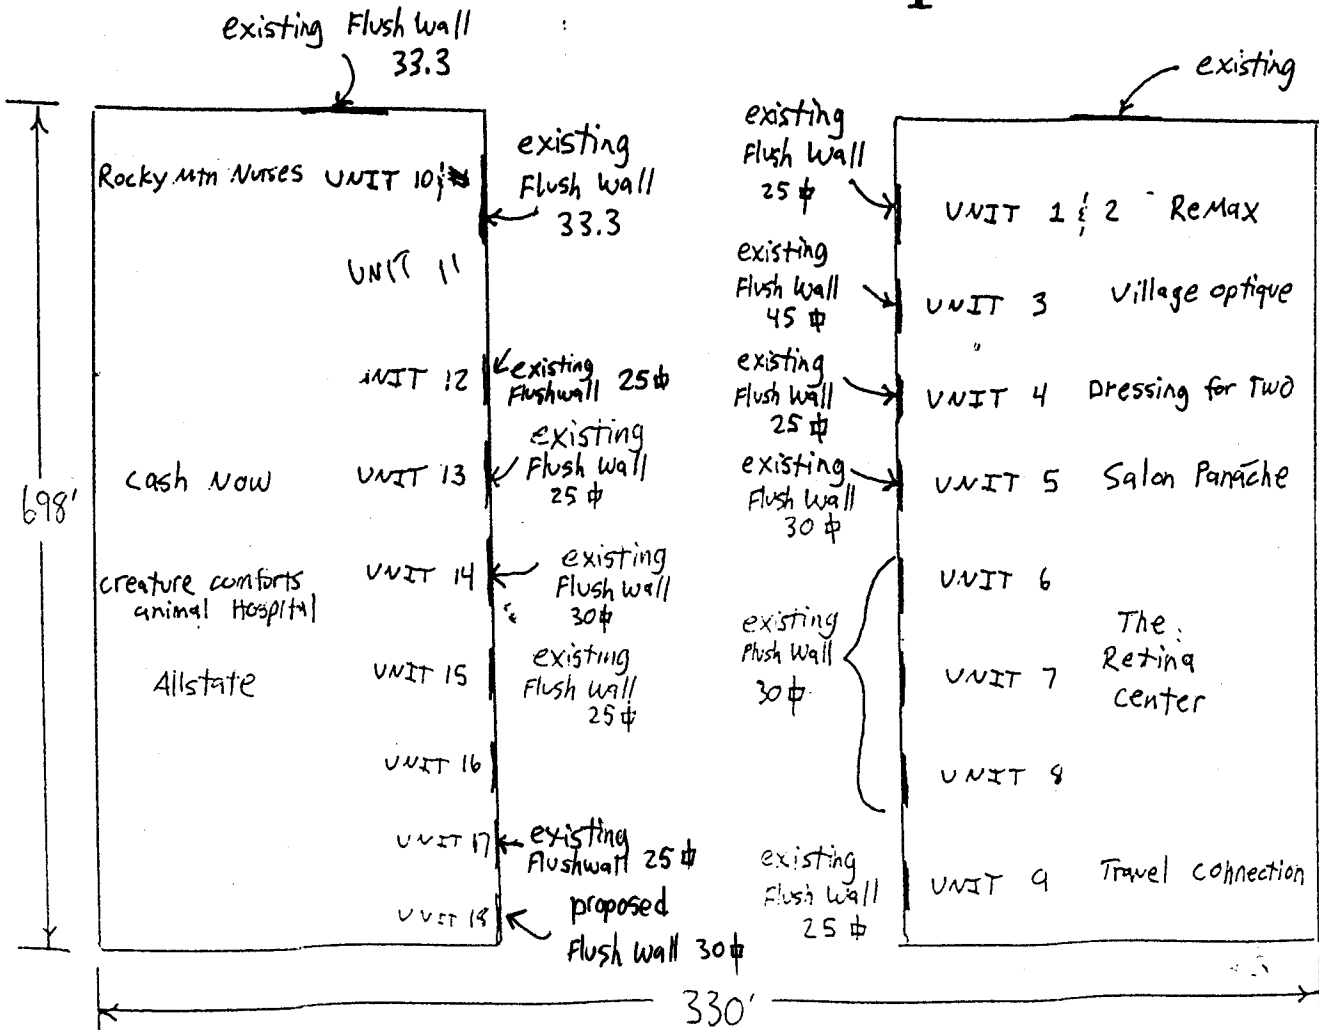 existing Flush Wall
33.3
existing
Rocky Mtn Nurses UNIT 10 &
existing
Flush Wall
33.3
UNIT 11
UNIT 12
existing
Flushwall 25 ⌽
cash Now
UNIT 13
existing
Flush Wall
25 ⌽
creature comforts
animal Hospital
UNIT 14
existing
Flush Wall
30 ⌽
Allstate
UNIT 15
existing
Flush Wall
25 ⌽
UNIT 16
UNIT 17
existing
Flushwall 25 ⌽
UNIT 18
proposed
Flush Wall 30 ⌽
698'
330'
existing
Flush Wall
25 ⌽
UNIT 1 & 2 ReMax
existing
Flush Wall
45 ⌽
UNIT 3 Village optique
existing
Flush Wall
25 ⌽
UNIT 4 Dressing for Two
existing
Flush Wall
30 ⌽
UNIT 5 Salon Panache
UNIT 6
existing
Flush Wall
30 ⌽
UNIT 7
The
Retina
center
UNIT 8
existing
Flush Wall
25 ⌽
UNIT 9 Travel connection